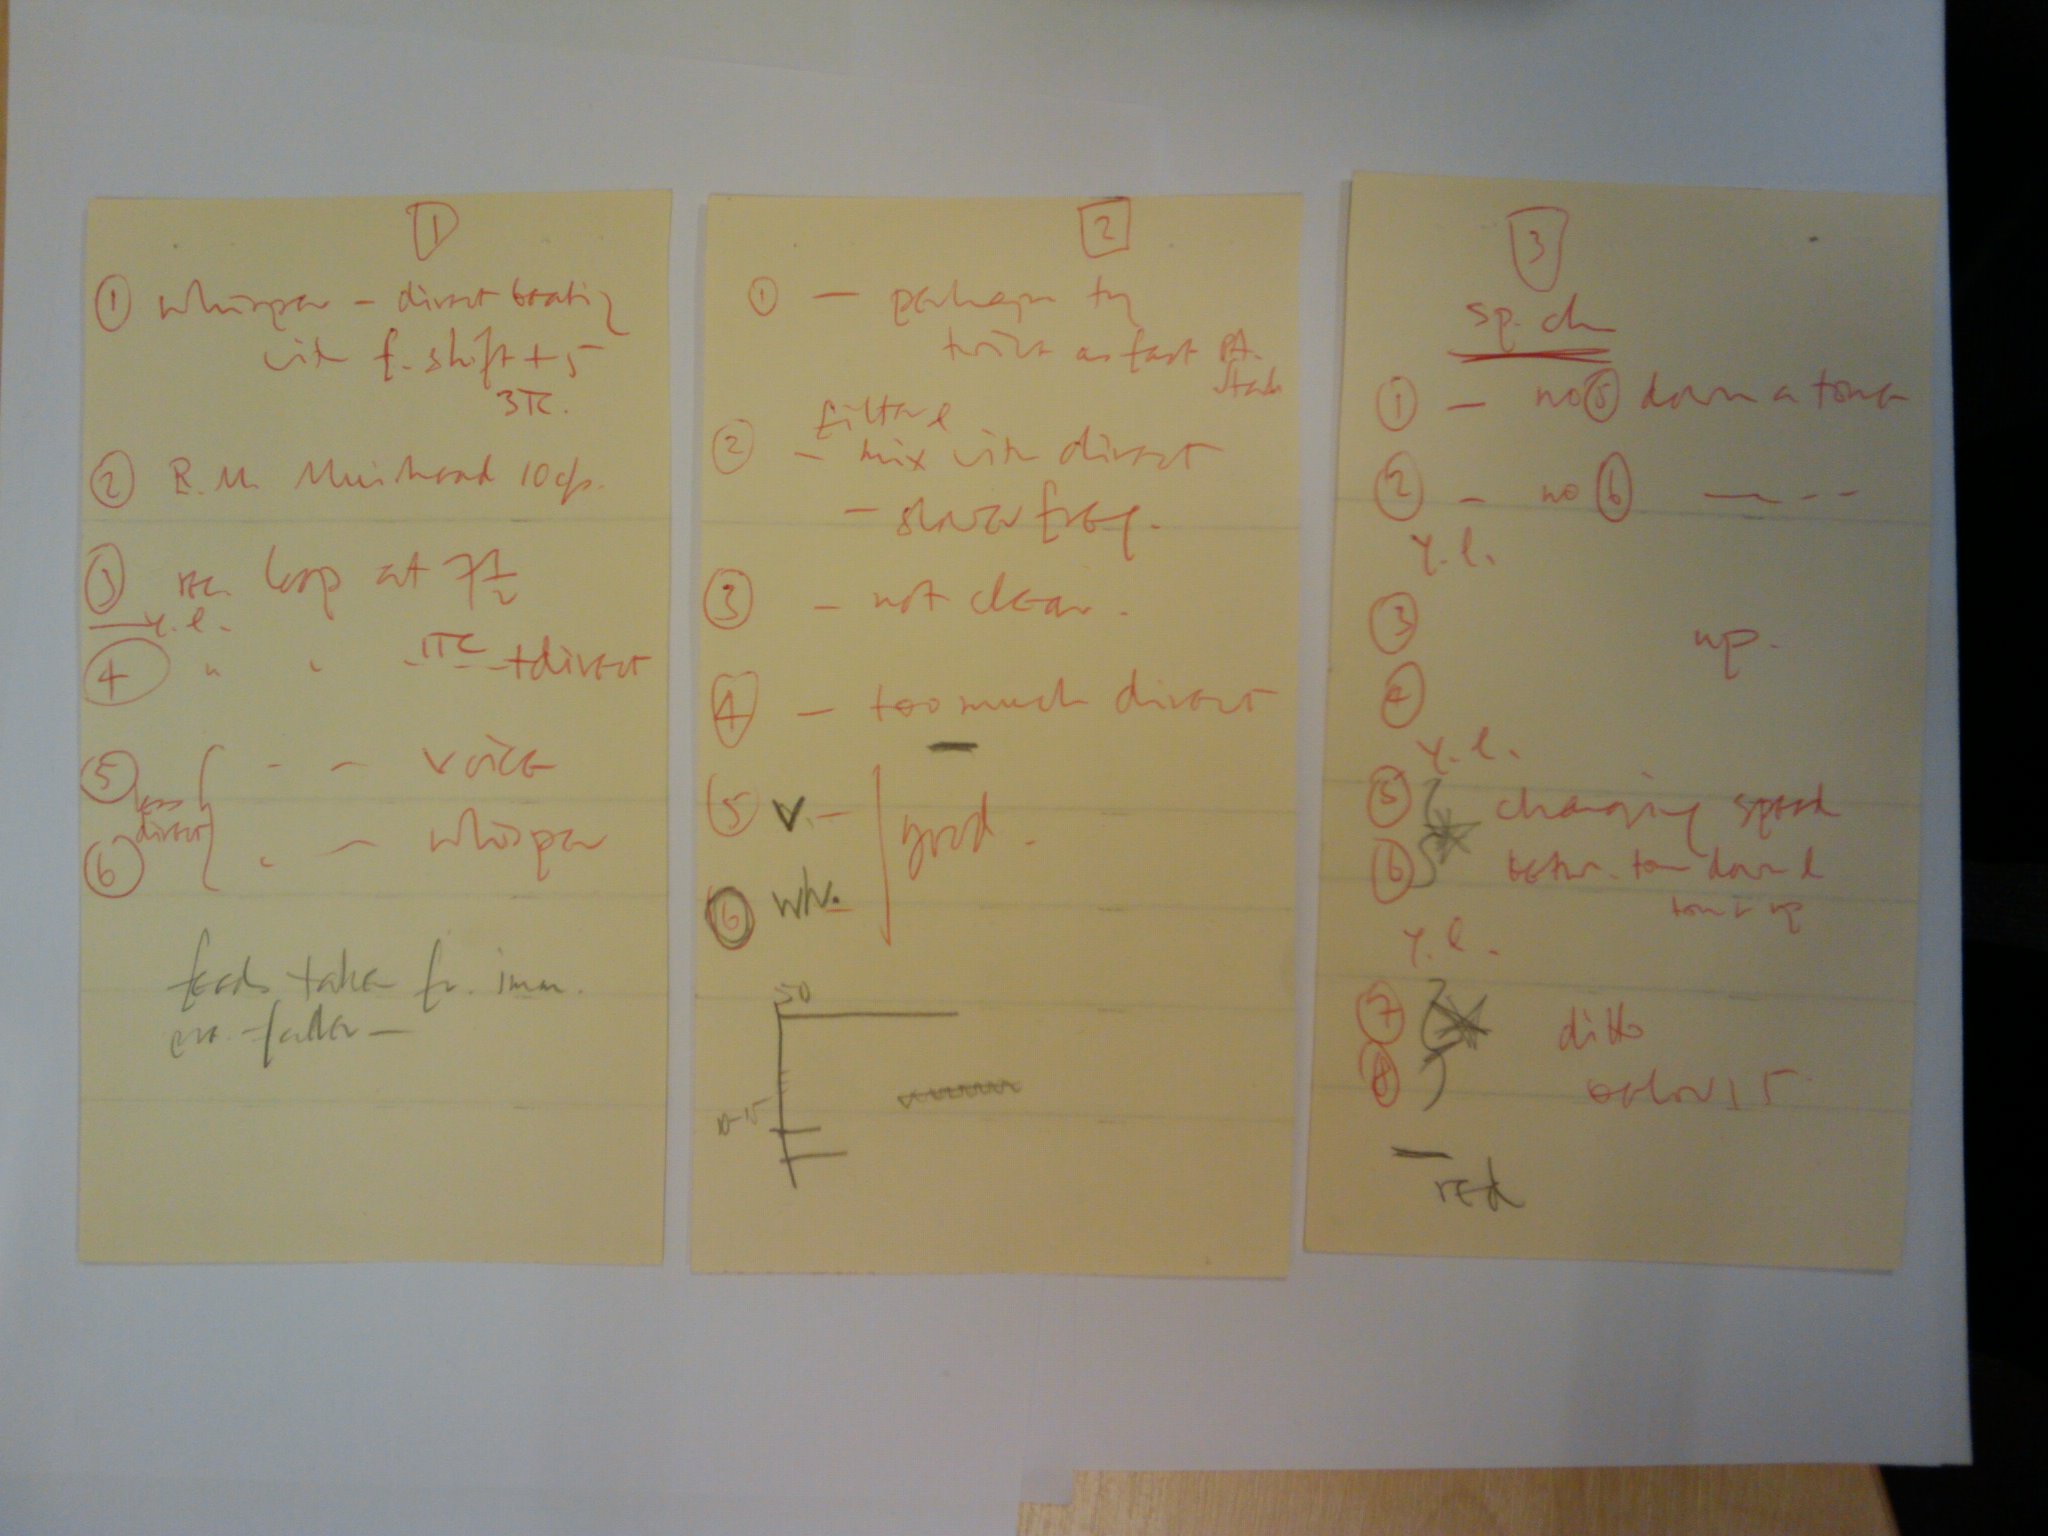 1
① whisper - direct beating
with f. shift + 5
3TC.
② R.M. Muirhead 10 c/s.
③ rec. loop at 7½
y.l.
④ " " 1TC + direct
⑤ - - voice
less direct
⑥ " - whisper
feeds taken fr. imm.
2
① - perhaps try
twice as fast
filter &
② - mix with direct
- slower freq.
③ - not clear.
④ - too much direct
⑤ v. -
good.
⑥ wh. -
50
10-15
3
sp. ch
① - no ⑤ down a tone
② - no ⑥ - - -
y.l.
③ up.
④
y.l.
⑤ changing speed
⑥ betw. tone down &
tone up
y.l.
⑦ ditto
⑧
red